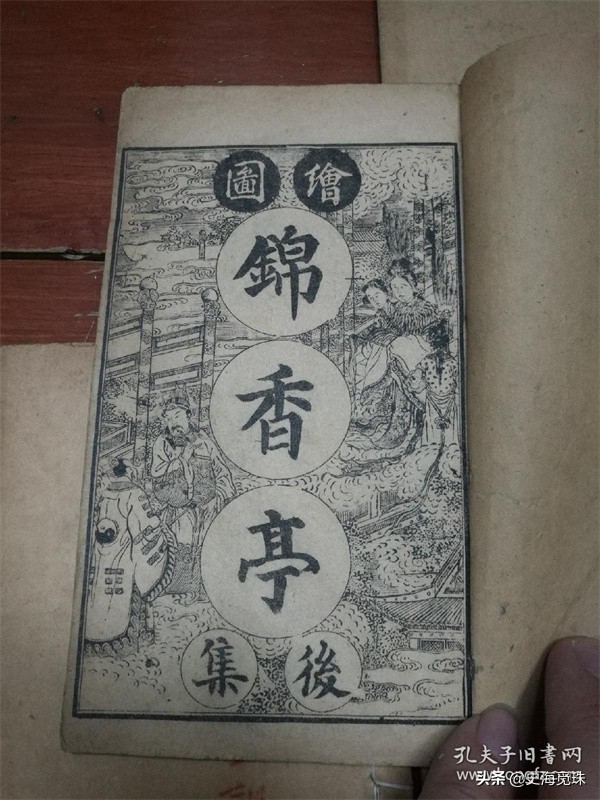 繪圖
錦
香
亭
後集
孔夫子旧书网
www.kongfz.com
头条@史海觅珠